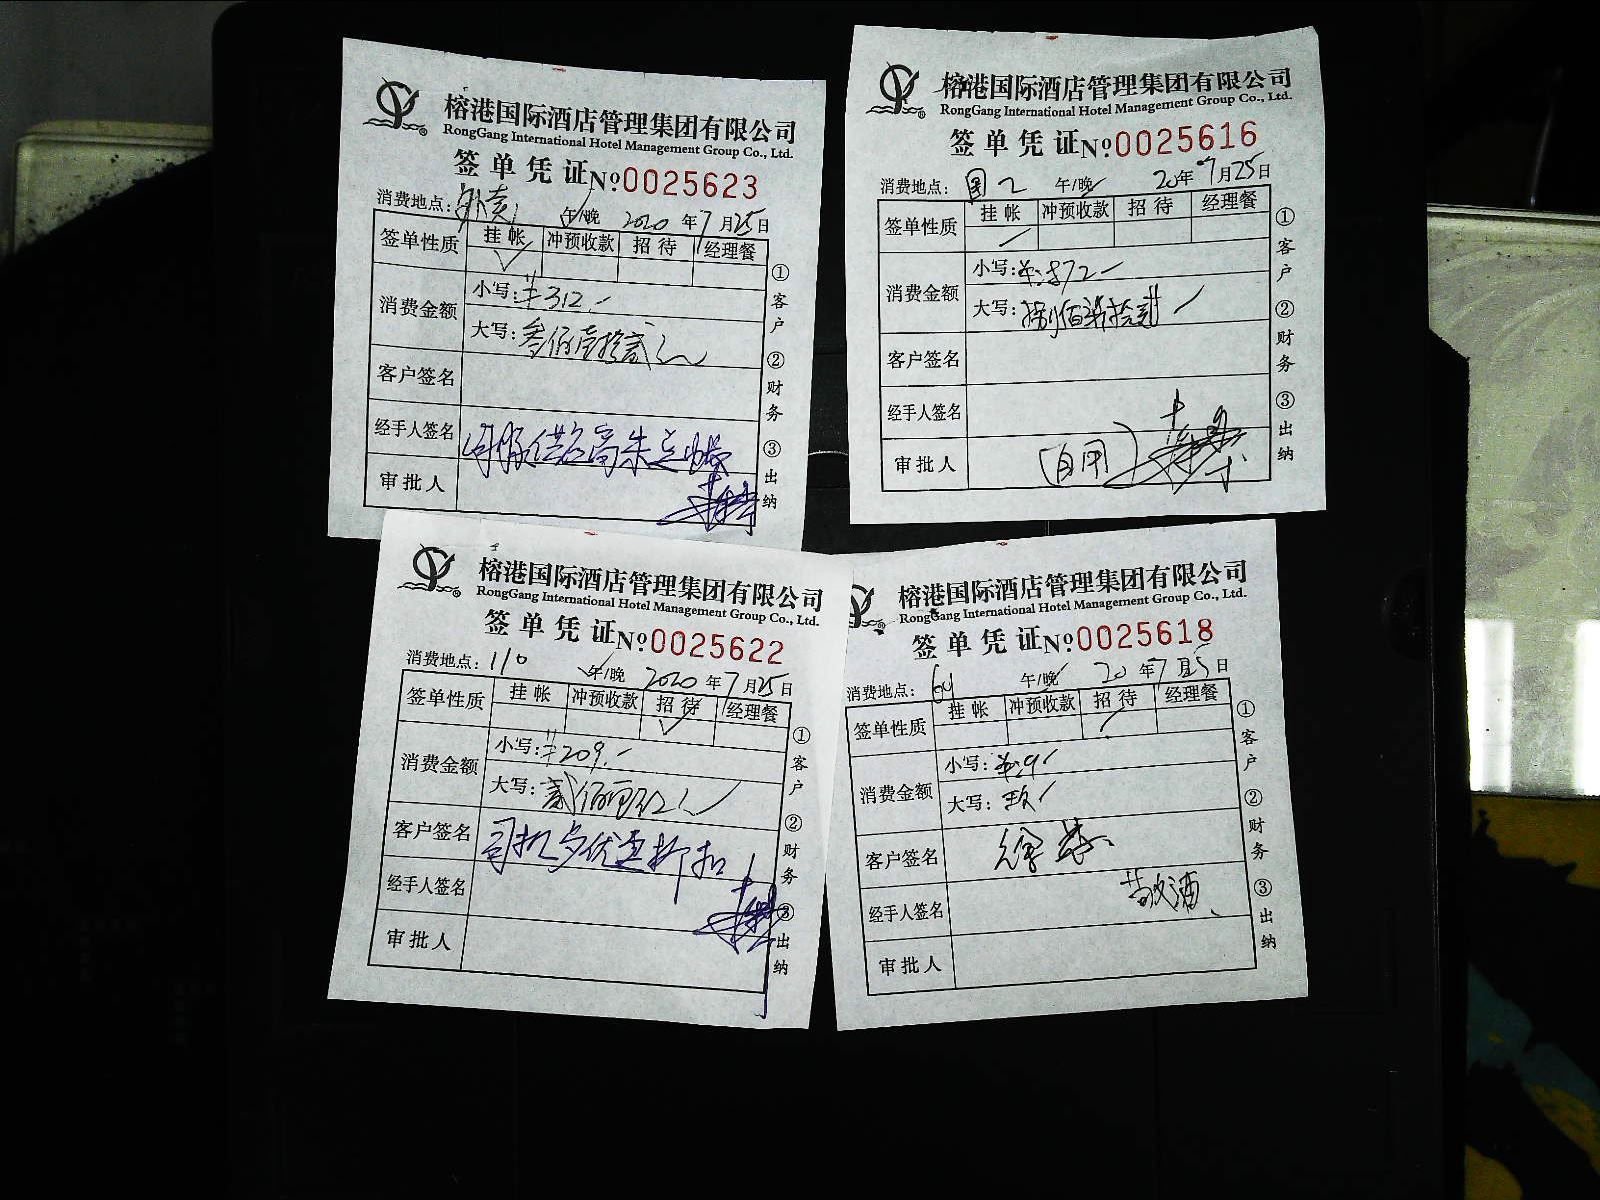 榕港国际酒店管理集团有限公司
RongGang International Hotel Management Group Co., Ltd.
签单凭证 No 0025623
消费地点: 外卖 午/晚 2020年7月25日
签单性质 挂帐 冲预收款 招待 经理餐
消费金额 小写: ¥312.-
大写: 叁佰壹拾贰
客户签名
经手人签名
审批人
①客户 ②财务 ③出纳
榕港国际酒店管理集团有限公司
RongGang International Hotel Management Group Co., Ltd.
签单凭证 No 0025616
消费地点: 午/晚 20年7月25日
签单性质 挂帐 冲预收款 招待 经理餐
消费金额 小写: ¥:872-
大写: 捌佰柒拾贰
客户签名
经手人签名
审批人 (自用)
①客户 ②财务 ③出纳
榕港国际酒店管理集团有限公司
RongGang International Hotel Management Group Co., Ltd.
签单凭证 No 0025622
消费地点: 110 午/晚 2020年7月25日
签单性质 挂帐 冲预收款 招待 经理餐
消费金额 小写: ¥209.-
大写: 贰佰零玖
客户签名 司机与优惠折扣
经手人签名
审批人
①客户 ②财务 ③出纳
榕港国际酒店管理集团有限公司
RongGang International Hotel Management Group Co., Ltd.
签单凭证 No 0025618
消费地点: 午/晚 20年7月25日
签单性质 挂帐 冲预收款 招待 经理餐
消费金额 小写: ¥:9-
大写: 玖
客户签名
经手人签名 敬酒
审批人
①客户 ②财务 ③出纳